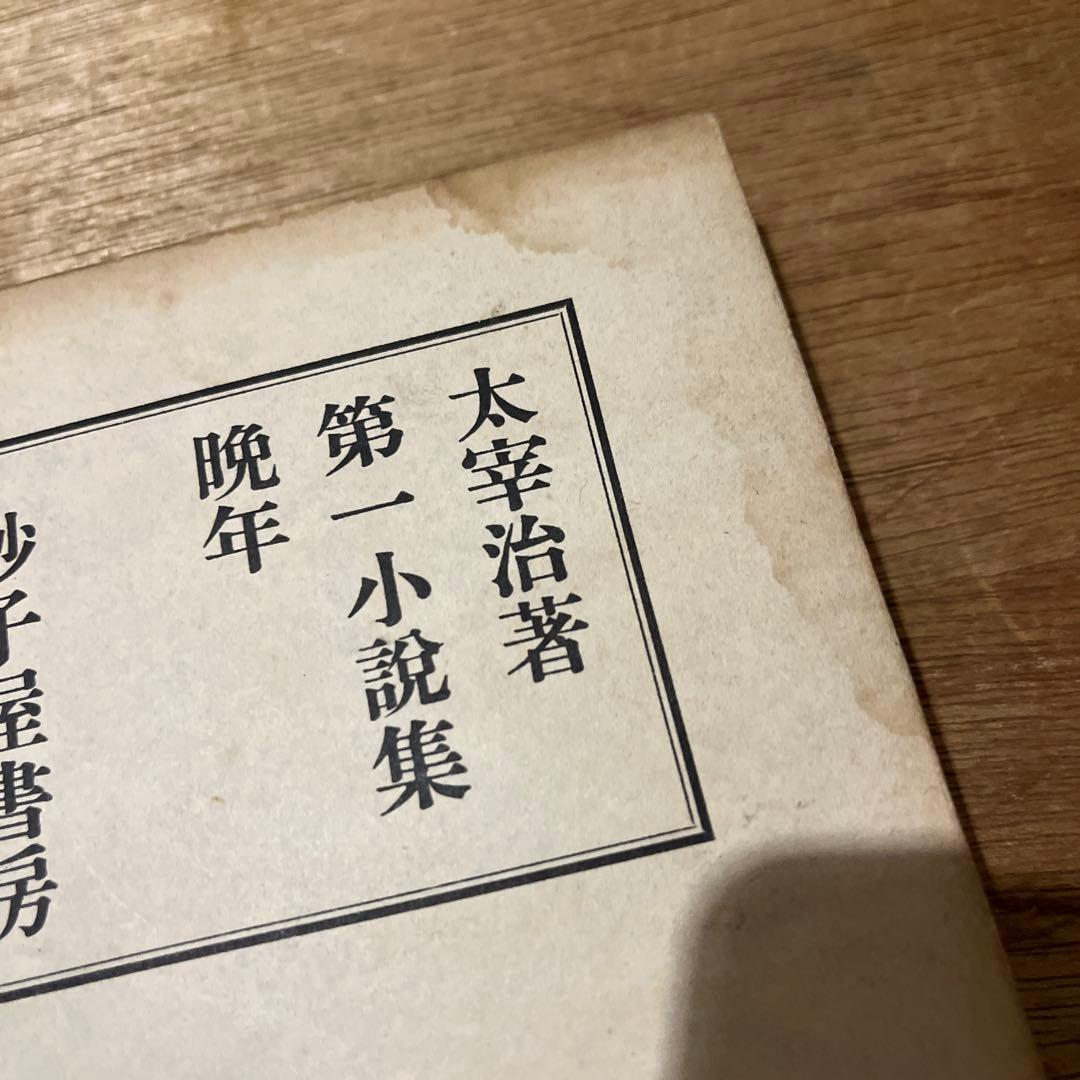 太宰治著
第一小說集
晩年
砂子屋書房